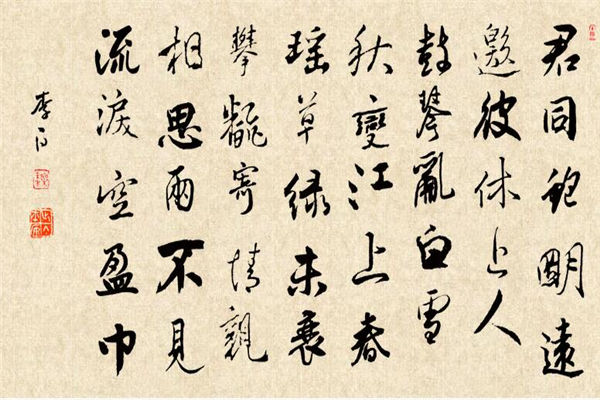 君同鮑明遠
邀彼休上人
鼓琴亂白雪
秋變江上春
瑶草緑未衰
攀飜寄情親
相思兩不見
流淚空盈巾
李白